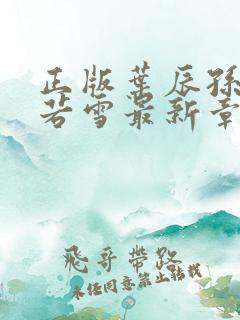 正版葉辰孫
若雪最新章
飛哥帶路
未经同意禁止转载